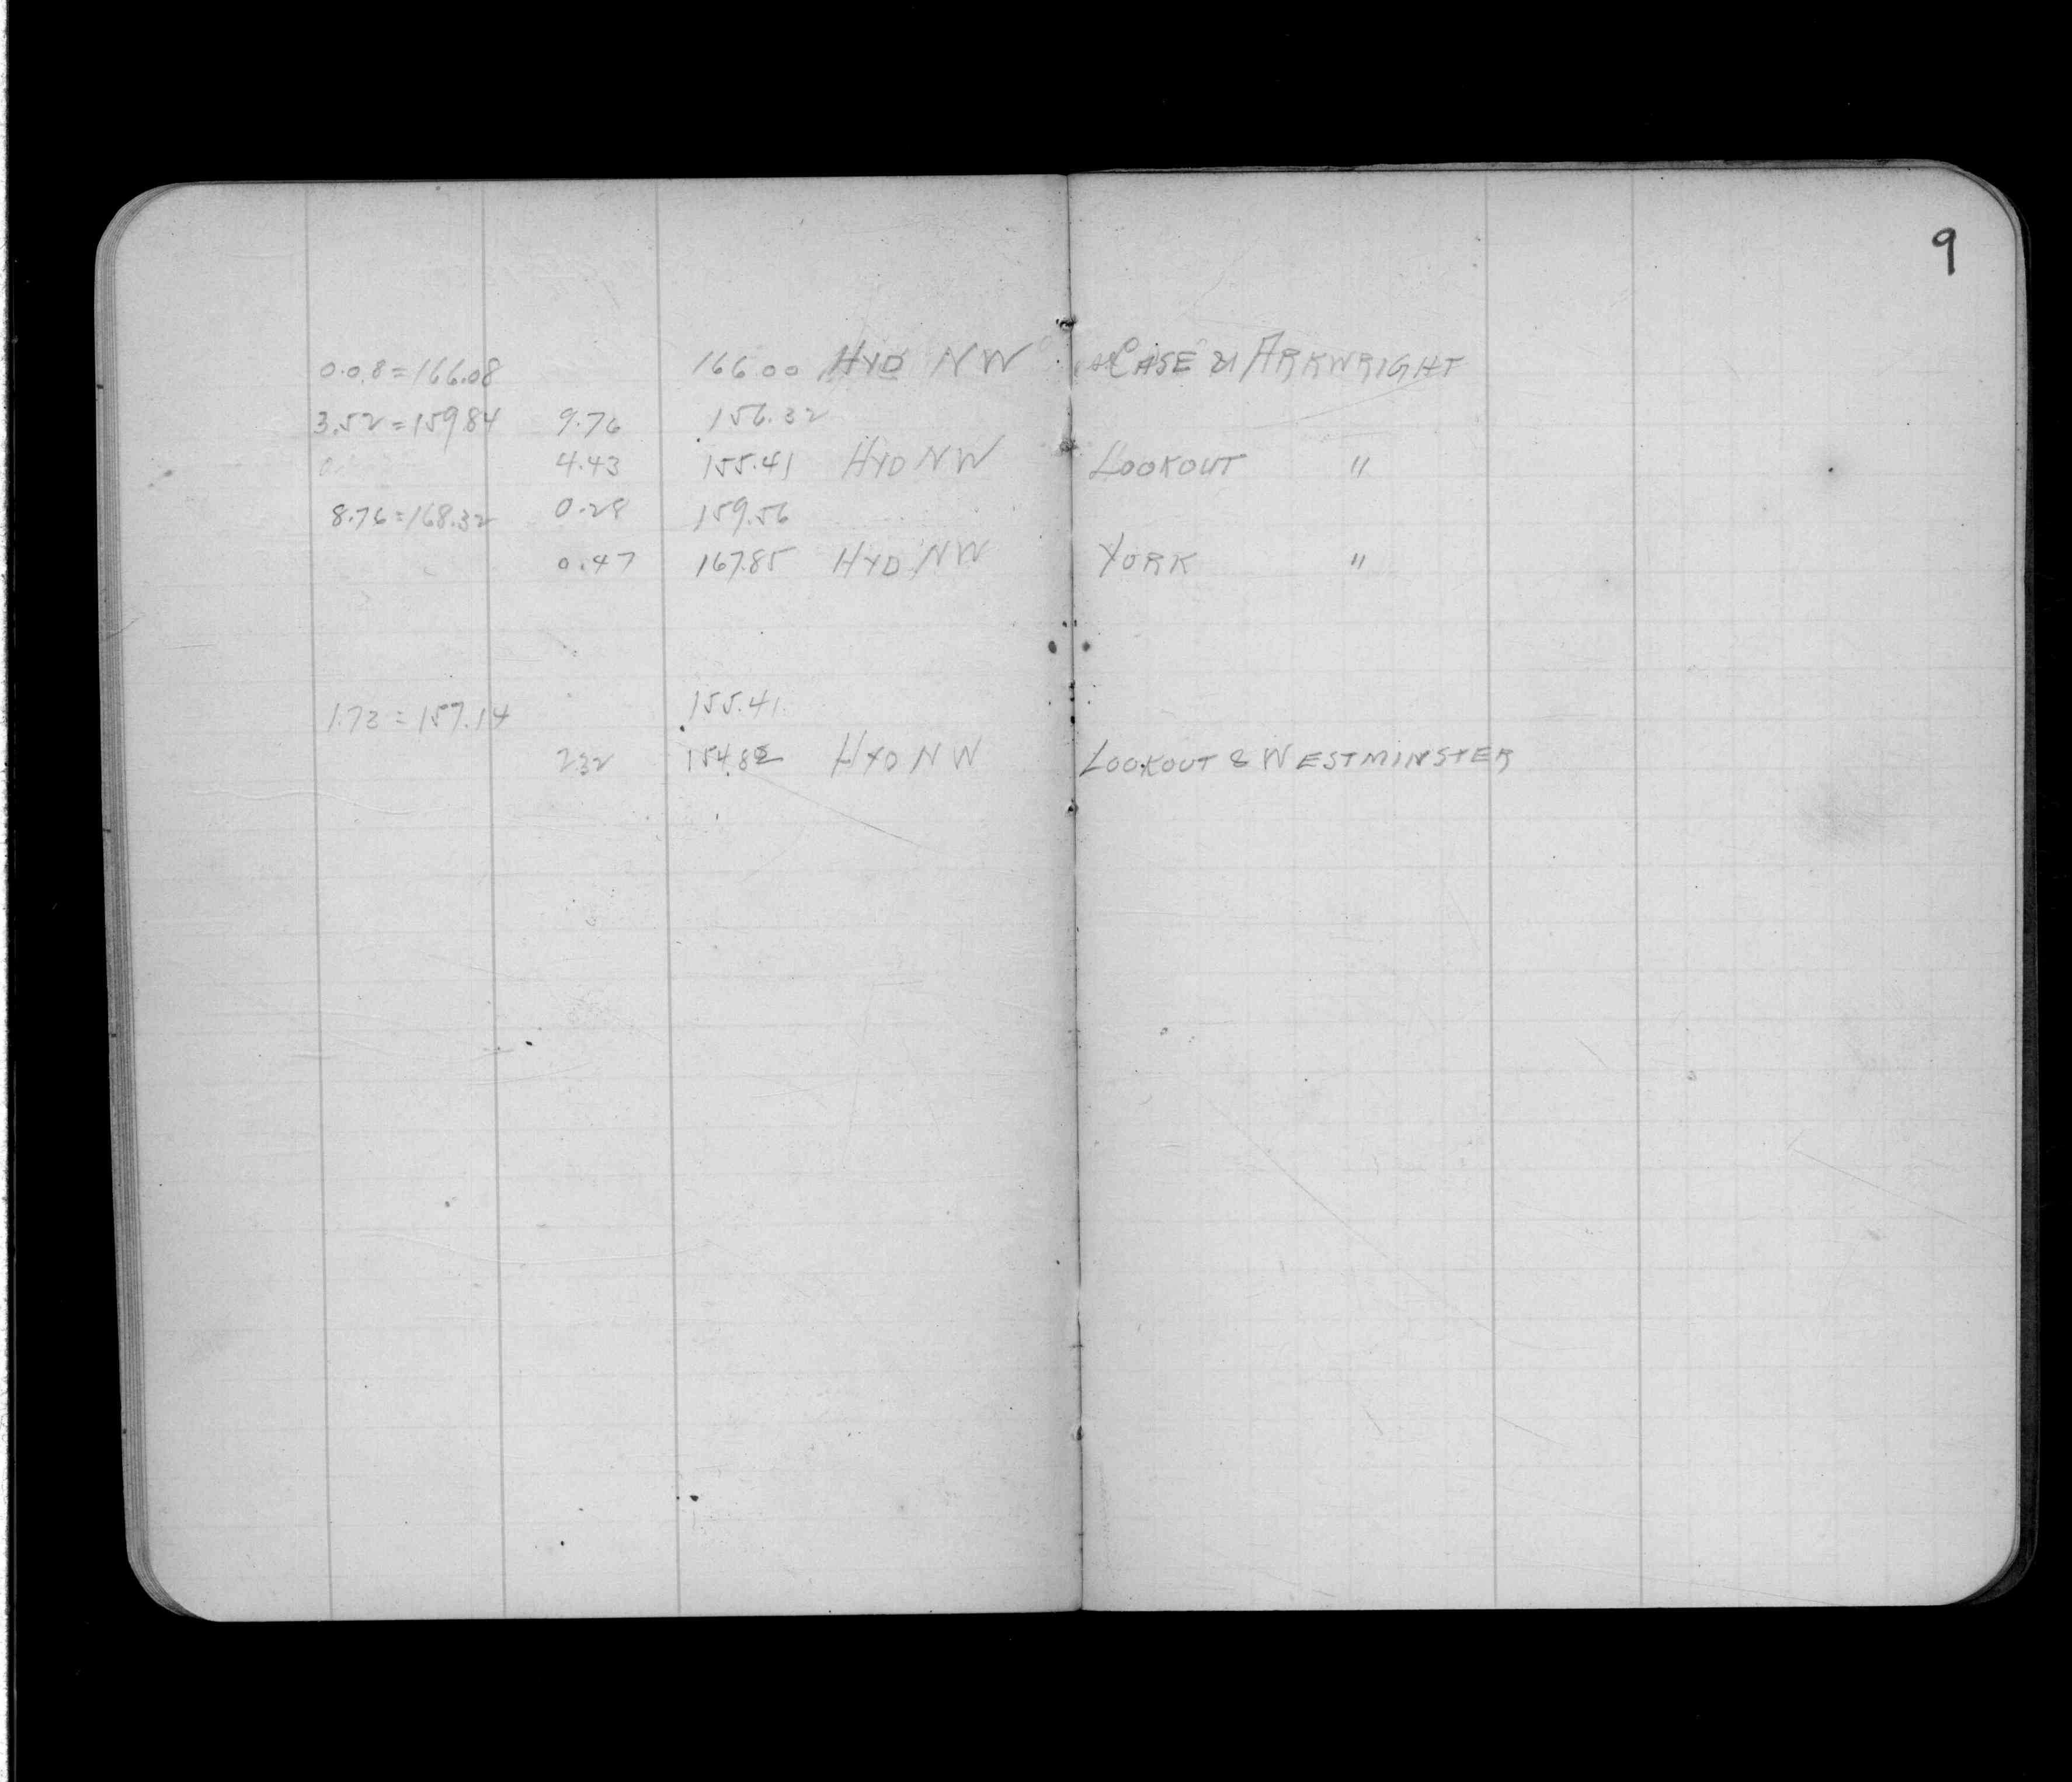 9
0.08=166.08 166.00 HYD NW CASE & ARKWRIGHT
3.52=159.84 9.76 156.32
4.43 155.41 HYD NW LOOKOUT "
8.76=168.32 0.28 159.56
0.47 167.85 HYD NW YORK "
1.73=157.14 155.41
2.32 154.82 HYD NW LOOKOUT & WESTMINSTER